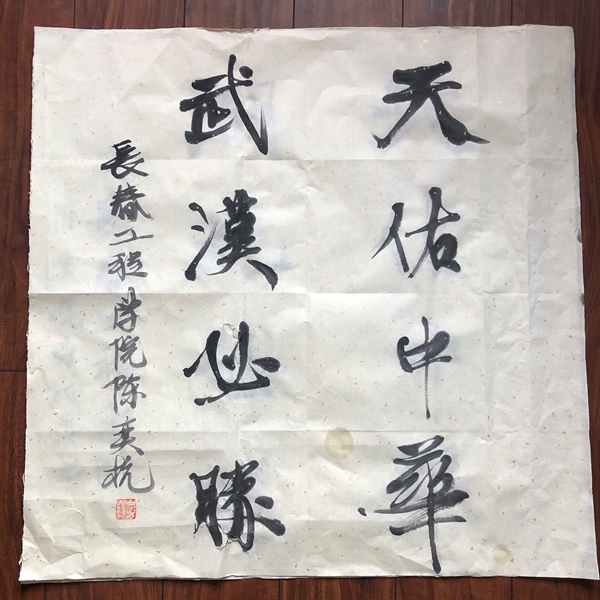 天佑中華
武漢必勝
長春工程学院陈奕杭